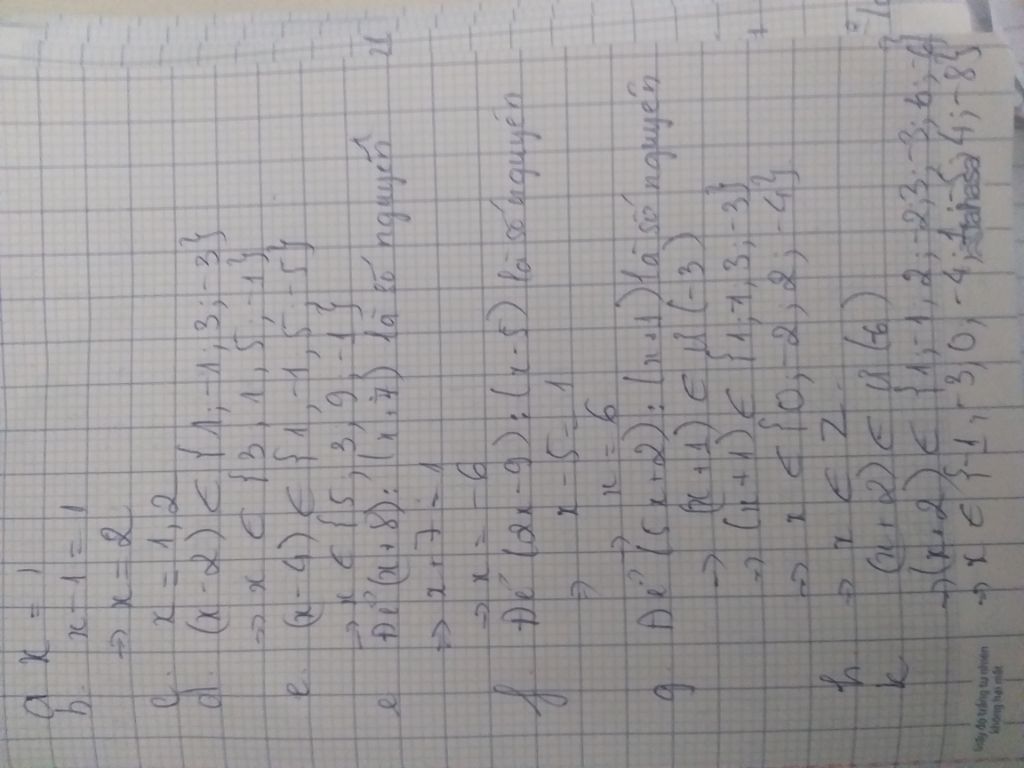 a x = 1
b. x - 1 = 1
⇒ x = 2
c. x = 1, 2
d. (x - 2) ∈ {1; -1; 3; -3}
⇒ x ∈ {3; 1; 5; -1}
e. (x - 4) ∈ {1; -1; 5; -5}
→ x ∈ {5; 3; 9; -1}
e Để (x + 8) : (x + 7) là số nguyên
⇒ x + 7 = 1
⇒ x = -6
f. Để (2x - 9) : (x - 5) là số nguyên
⇒ x - 5 = 1
⇒ x = 6
g. Để (5x + 2) : (x + 1) là số nguyên
→ (x + 1) ∈ Ư (-3)
⇒ (x + 1) ∈ {1; -1; 3; -3}
⇒ x ∈ {0; -2; 2; -4}
h. ⇒ x ∈ Z
k (x + 2) ∈ Ư (6)
⇒ (x + 2) ∈ {1; -1; 2; -2; 3; -3; 6; -6}
⇒ x ∈ {-1; -3; 0; -4; 1; -5; 4; -8}
Giấy độ trắng tự nhiên
không hại mắt